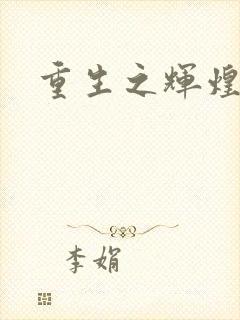 重生之辉煌
李娟